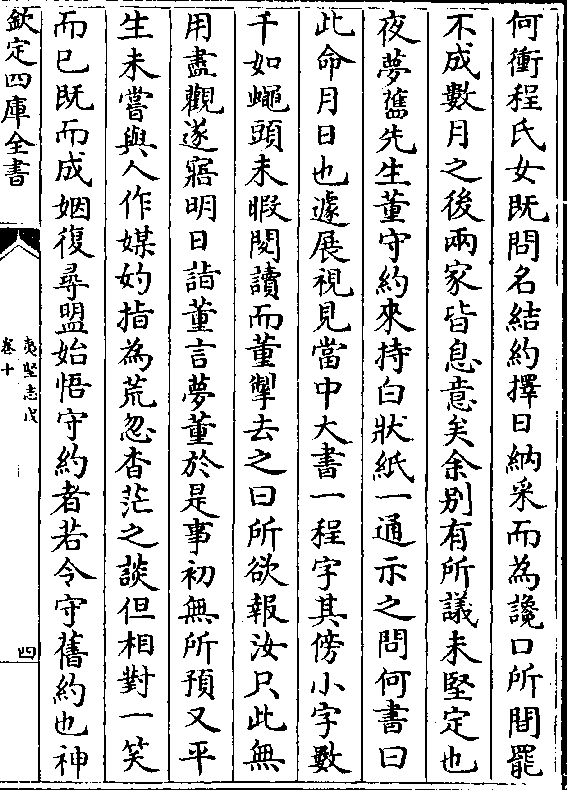 何衝程氏女既問名結約擇日納采而為讒口所間罷
不成數月之後兩家皆息意矣余别有所議未堅定也
夜夢舊先生董守約來持白狀紙一通示之問何書曰
此命月日也遽展視見當中大書一程字其傍小字數
千如蠅頭未暇閲讀而董掣去之曰所欲報汝只此無
用盡觀遂寤明日詣董言夢董於是事初無所預又平
生未嘗與人作媒妁指為荒忽杳茫之談但相對一笑
而已既而成姻復尋盟始悟守約者若令守舊約也神
欽定四庫全書
夷堅志戊
卷十
四